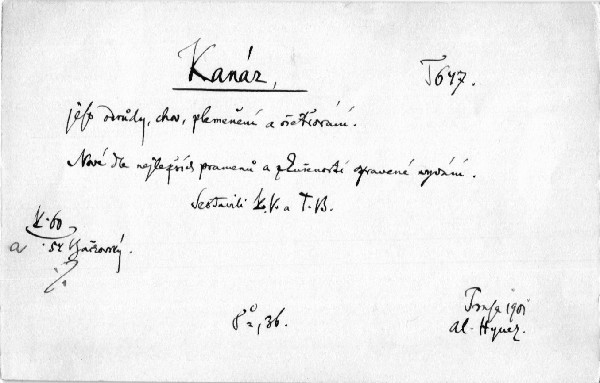 Kanár, T647.
jeho odrůdy, chov, plemenění a ošetřování.
Nové dle nejlepších pramenů a zkušeností spravené vydání.
Sestavili K.V. a T.B.
K-60
a 54 Bačkovský.
8°, 36.
Praha 1901
Al. Hynek.